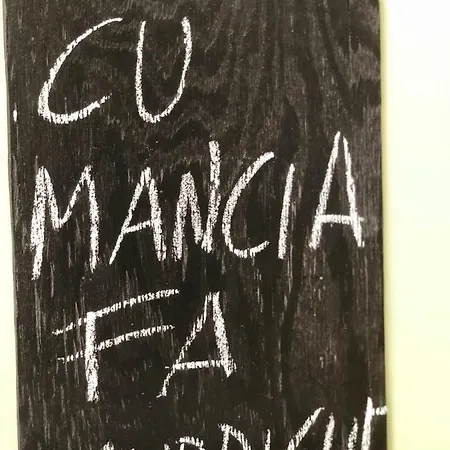 CU
MANCIA
FA